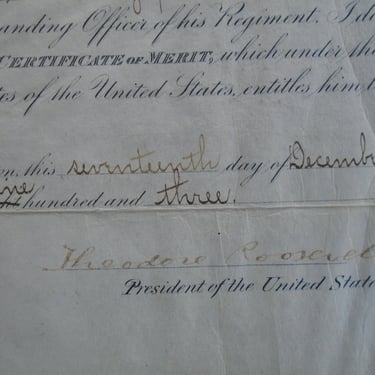 anding Officer of his Regiment. I do
CERTIFICATE OF MERIT, which under the
tes of the United States, entitles him t
on, this seventeenth day of Decembe
ine hundred and three.
Theodore Roosevel
President of the United State